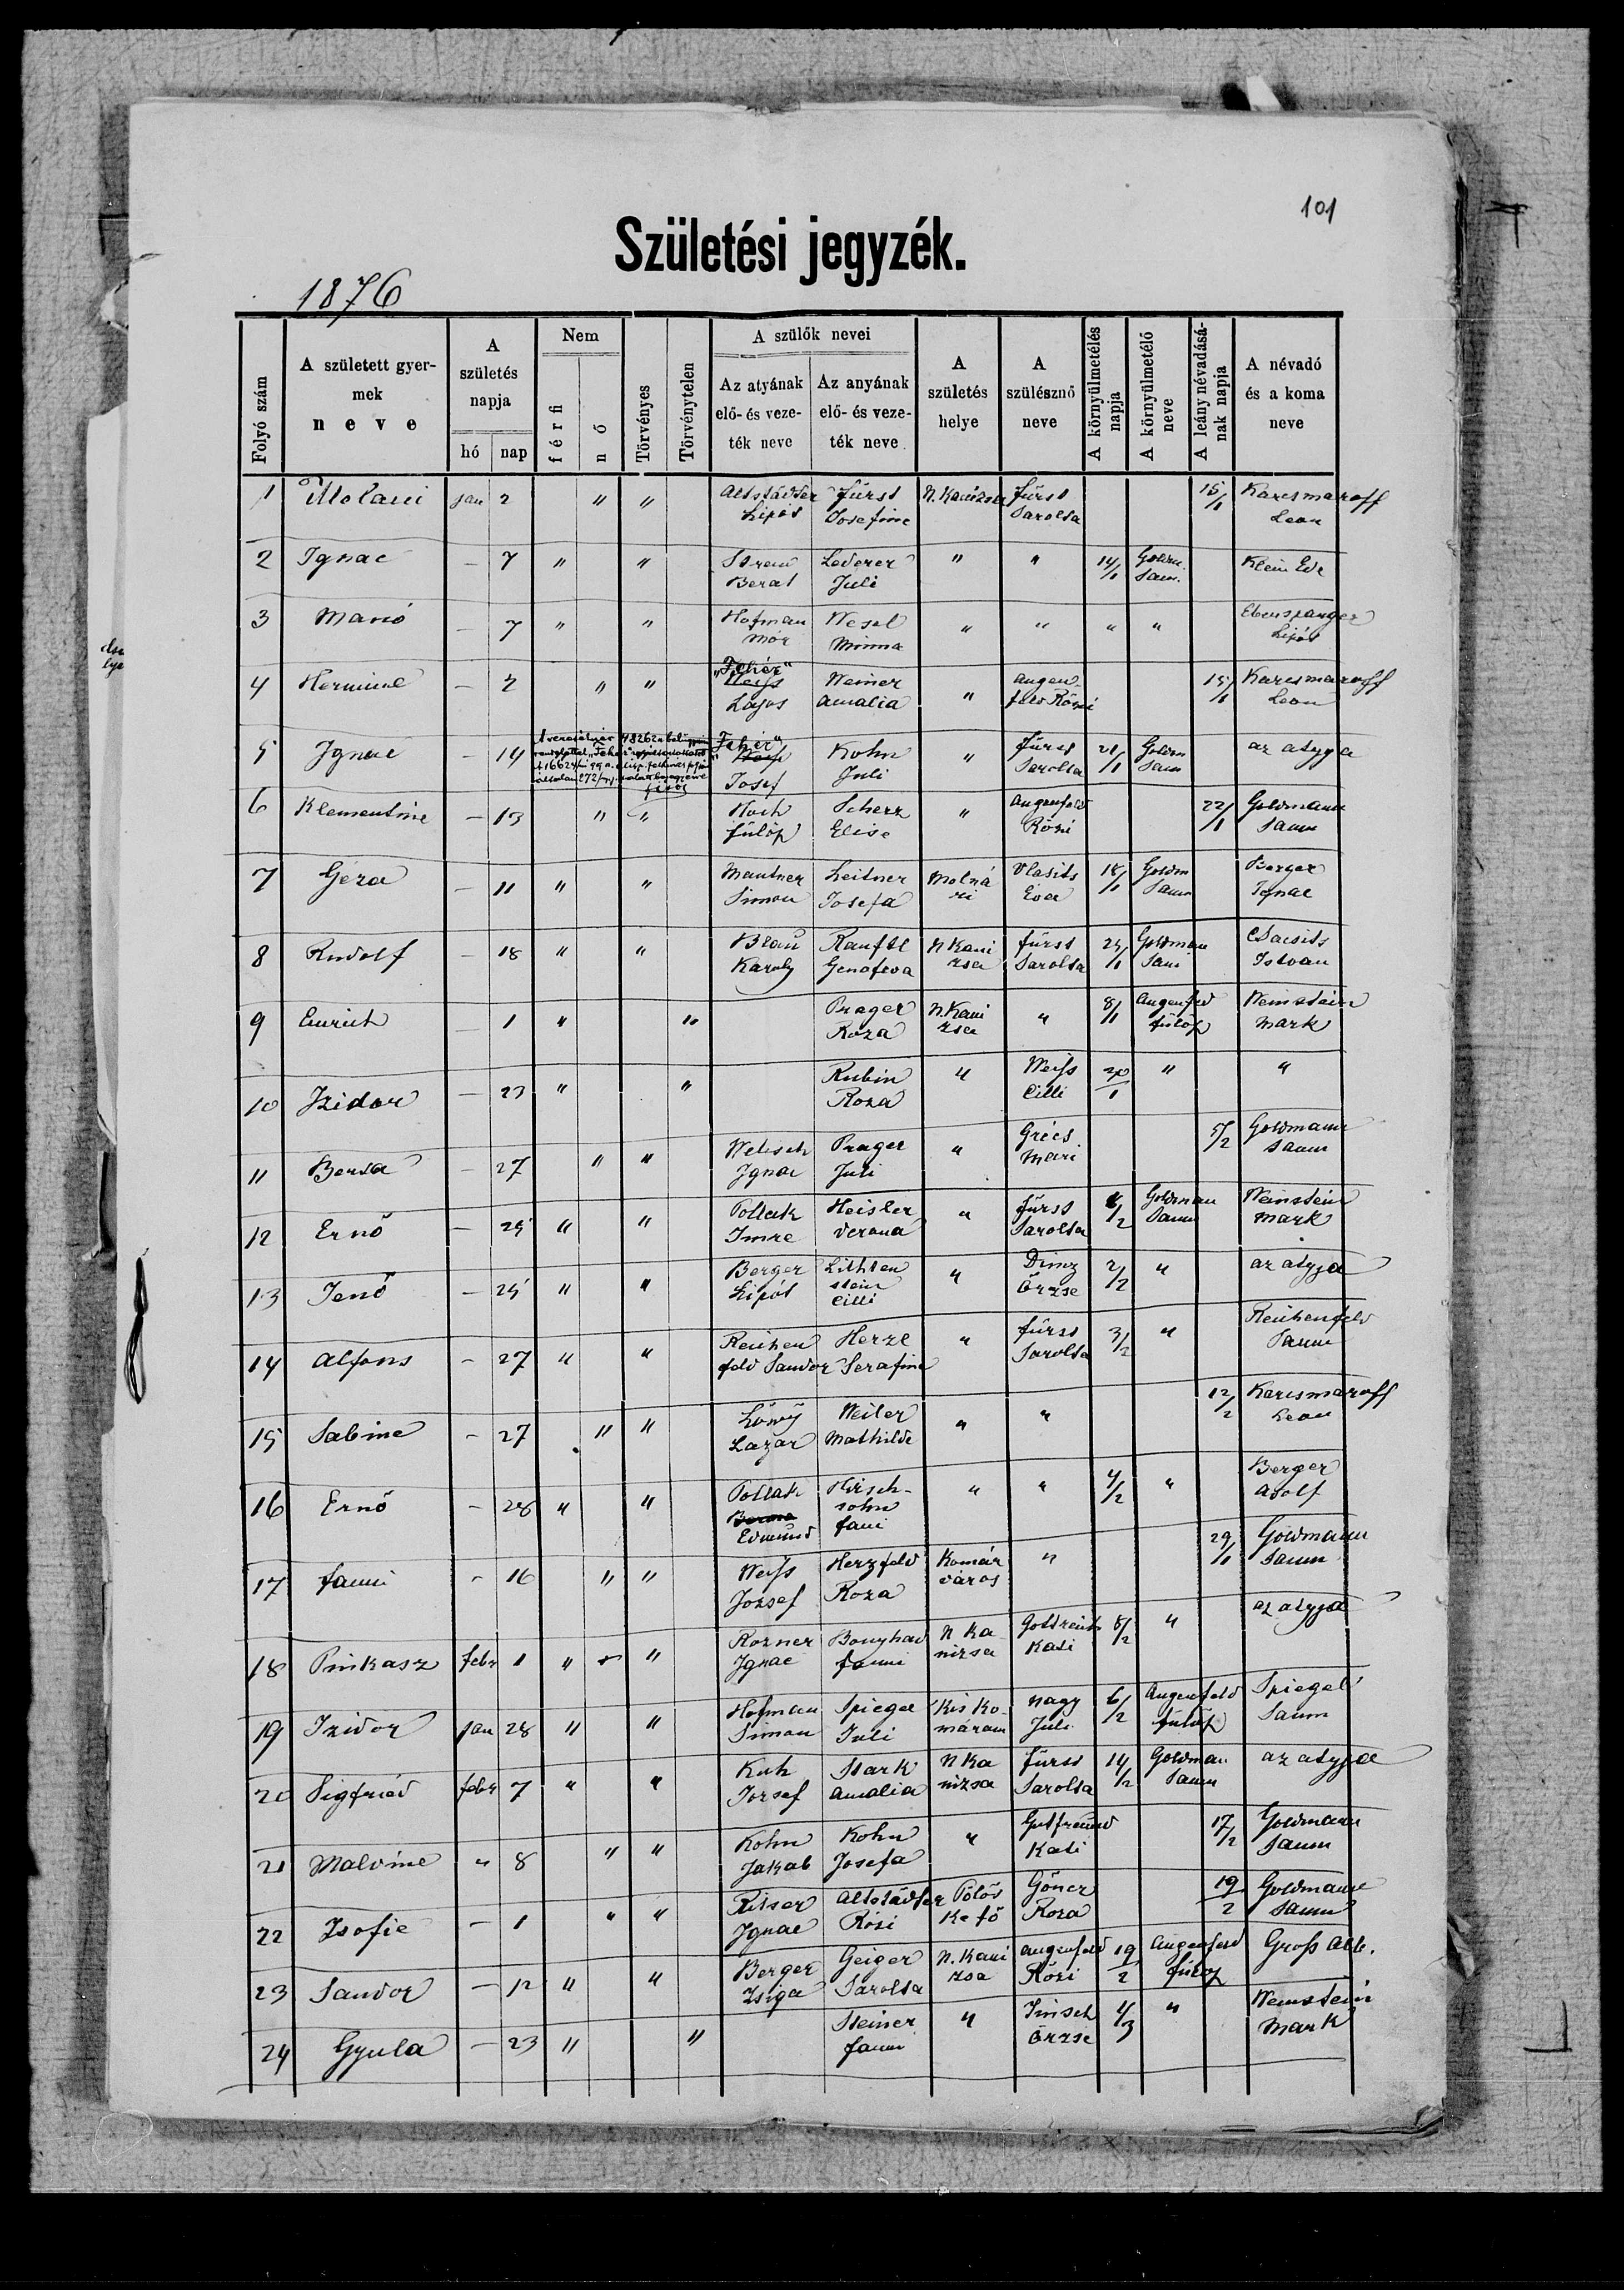 101
Születési jegyzék.
1876
Folyó szám | A született gyermek neve | A születés napja | hó | nap | Nem | férfi | nő | Törvényes | Törvénytelen | A szülők nevei | Az atyának elő- és vezeték neve | Az anyának elő- és vezeték neve | A születés helye | A szülésznő neve | A környülmetélés napja | A környülmetélő neve | A leány névadásának napja | A névadó és a koma neve
1 Melani jan 2 " " Altstädter Lipót Fürst Josefine N. Kanizsa Fürst Sarolta 15/1 Karesmaroff Leon
2 Ignac — 7 " " Berat Lederer Juli " " 14/1 Goldm. Sam. Klein Ede
3 Manó — 7 " " Hofman Mór Wesel Minna " " " " Ebenspanger Lipót
4 Hermine — 2 " " "Fehér" Weiss Lajos Weiner Amalia " Augenfeld Rózi 15/1 Karesmaroff Leon
5 Ignac — 14 "Fehér" Weiss Josef Kohn Juli " Fürst Sarolta 21/1 Goldm Sam az atyja
6 Klementine — 13 " " Koch Fülöp Scherz Elise " Augenfeld Rózi 22/1 Goldmann Samu
7 Géza — 11 " " Mautner Simon Leitner Josefa Molnári Vlasits Éva 18/1 Goldm Samu Berger Ignac
8 Rudolf — 18 " " Blau Karoly Ranftl Genofeva N Kanizsa Fürst Sarolta 25/1 Goldman Sam Istvan
9 Emrich — 1 " " Prager Roza N. Kanizsa " 8/1 Augenfld Fülöp Weinstein Mark
10 Izidor — 23 " " Rubin Roza " Weiss Cilli 30/1 " "
11 Berta — 27 " " Welisch Ignac Prager Juli " Grécs Mari 5/2 Goldmann Samu
12 Ernő — 25 " " Pollak Imre Heisler Verona " Fürst Sarolta /2 Goldman Samu Weinstein Mark
13 Jenő — 25 " " Berger Lipót Lichtenstein Cilli " Örzse 2/2 " az atyja
14 Alfons — 27 " " Reichenfeld Sandor Herzl Serafine " Fürst Sarolta 3/2 " Reichenfeld Samu
15 Sabine — 27 " " Löwy Lazar Weiler Mathilde " " 12/2 Karesmaroff Leon
16 Ernő — 28 " " Pollak Edmund Hirschsohn Fani " " 4/2 " Berger Adolf
17 Fanni — 16 " " Weiss Jozsef Herzfeld Roza Komárváros " 29/1 Goldmann Samu
18 Pinkasz febr 1 " " Rozner Ignac Bonyhad Fanni N Kanizsa Kati 8/2 " az atyja
19 Izidor jan 28 " " Hofman Simon Spiegel Juli Kis Komárom Nagy Juli 6/2 Augenfeld Fülöp Spiegel Samu
20 Sigfried febr 7 " " Kuh Jozsef Stark Amalia N Kanizsa Fürst Sarolta 14/2 Goldman Samu az atyja
21 Malvine " 8 " " Kohn Jakab Kohn Josefa " Gutfreund Kati 17/2 Goldmann Samu
22 Zsofie — 1 " " Ritser Ignac Altstädter Rózi Pölöskefő Göncz Roza 19/2 Goldmann Samu
23 Sandor — 12 " " Berger Zsiga Geiger Sarolta N. Kanizsa Augenfeld Rózi 19/2 Augenfeld Fülöp Gross Alb.
24 Gyula — 23 " " Steiner Fanni " Örzse /3 " Weinstein Mark